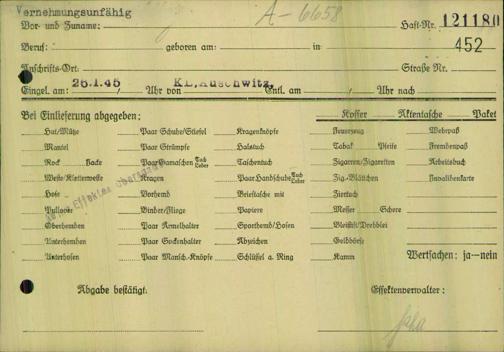 Vernehmungsunfähig
A-6658
Vor- und Zuname:
Haft-Nr. 121180
Beruf: geboren am: in 452
Anschrifts-Ort: Straße Nr.
Eingel. am: 26.1.45 / Uhr von KL.Auschwitz, Entl. am / Uhr nach
Bei Einlieferung abgegeben:
Koffer Aktentasche Paket
Hut/Mütze Paar Schuhe/Stiefel Kragenknöpfe Feuerzeug Wehrpaß
Mantel Paar Strümpfe Halstuch Tabak Pfeife Fremdenpaß
Rock Jacke Paar Gamaschen Tuch Leder Taschentuch Zigarren/Zigaretten Arbeitsbuch
Weste/Kletterweste Kragen Paar Handschuhe Tuch Leder Zig.-Blättchen Invalidenkarte
Hose Vorhemd Brieftasche mit Ziertuch
Pullover Binder/Fliege Papiere Messer Schere
Oberhemden Paar Ärmelhalter Sporthemd/Hosen Bleistift/Drehblei
Unterhemden Paar Sockenhalter Abzeichen Geldbörse
Unterhosen Paar Mansch.-Knöpfe Schlüssel a. Ring Kamm Wertsachen: ja—nein
Abgabe bestätigt. Effektenverwalter: